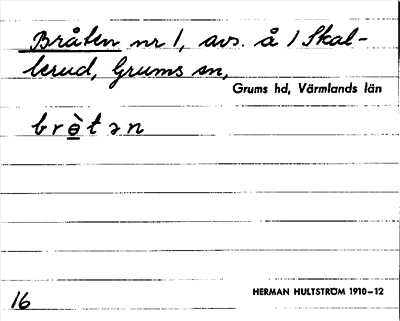 Bråten nr 1, avs. å 1 Skal-
lerud, Grums sn,
Grums hd, Värmlands län
brὲ̱tən
HERMAN HULTSTRÖM 1910–12
16